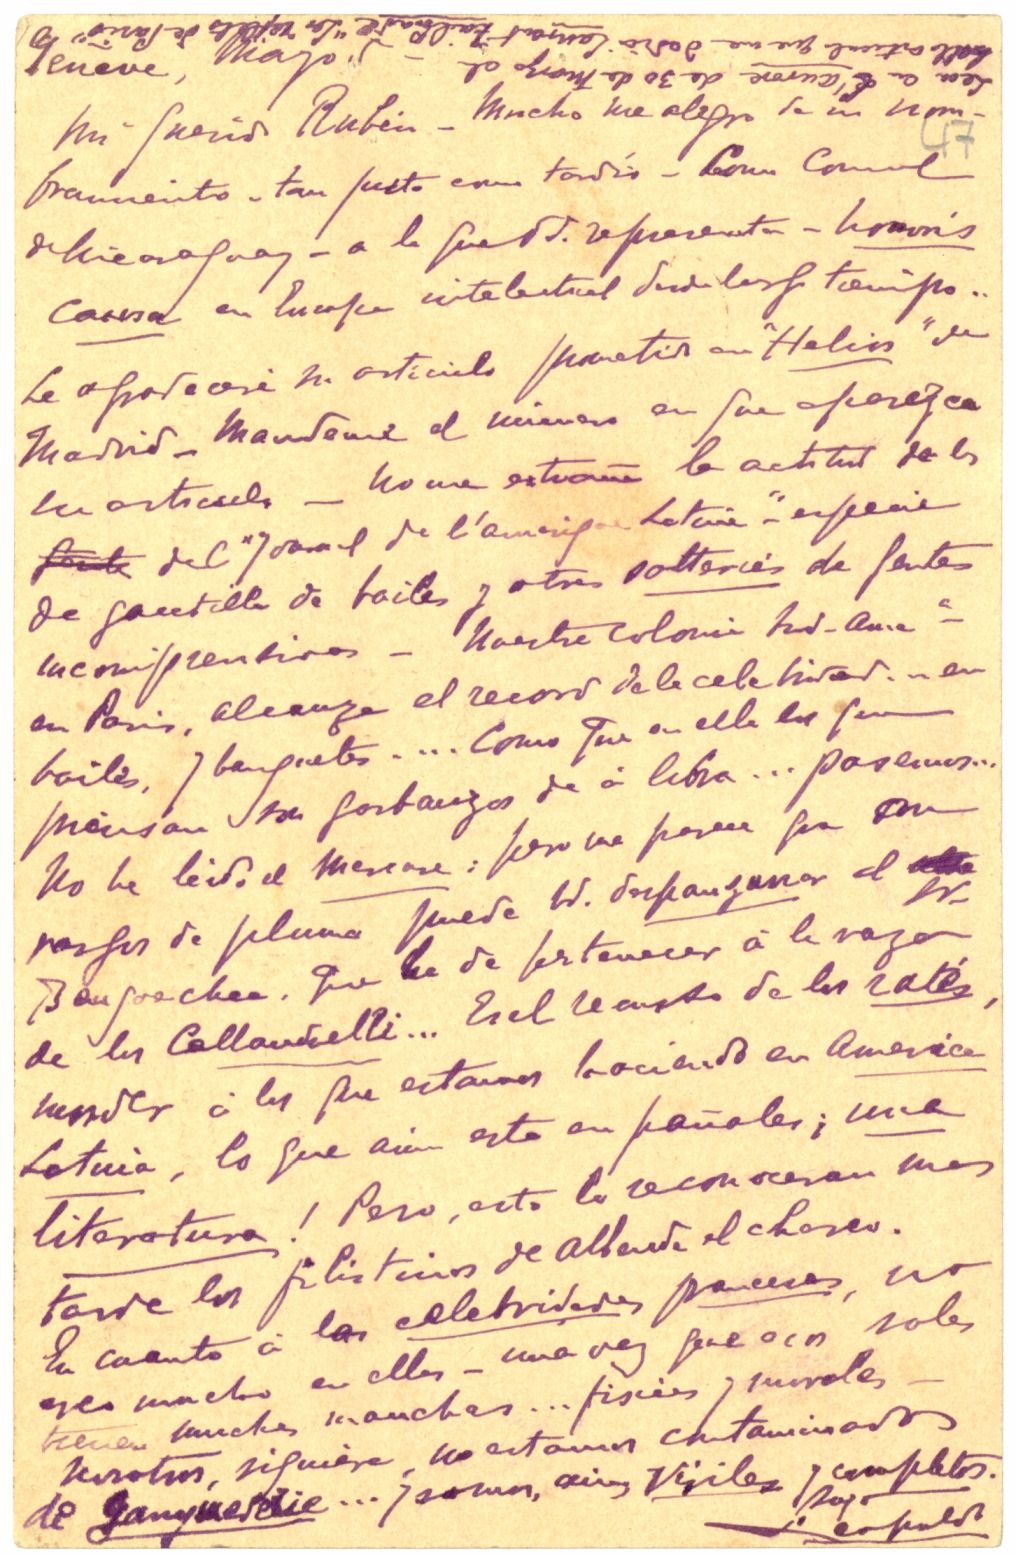 Lea en L'aurore de 30 de Marzo el
bello articulo que me dedica Laurent Tailhade "Los reflets de Paris"
Geneve, Mayo 5 -
Mi querido Rubén - Mucho me alegro de su nom-
47
bramiento - tan justo como tardío - como Consul
de Nicaragua y - a la que Vd. representa - honoris
causa en Europa intelectual desde largo tiempo..
Le agradeceré su articulo prometido en "Helios" de
Madrid - Mandeme el numero en que aparezca
su articulo - No me extraña la actitut de los
del "Journal de l'amerique Latine" - especie
de gacetilla de bailes y otras sotteries de gentes
incomprensivas - Nuestra colonia Sud-Amª -
en Paris, alcanza el record de la celebridad... en
bailes, y banquetes.... Como que en ella los que
piensan son garbanzos de á libra... pasemos...
No he leido el Mercure: pero me parece que con
rasgos de pluma puede Vd. despanzurrar el Sr.
Bengoechea. Que ha de pertenecer á la raza
de los Collandrelli... Es el recurso de los ratés,
morder á los que estamos haciendo en America
Latina, lo que aun esta en pañales; una
literatura! Pero, esto lo reconoceran mas
tarde los filistinos de allende el charco.
En cuanto á las celebridades franceses, no
creo mucho en ellas - una vez que esos soles
tienen muchas manchas... fisicas y morales -
Nosotros, siquiera, no estamos contaminados
de Ganymedie... y somos, aun, Viriles y completos.
Suyo
Leopoldo